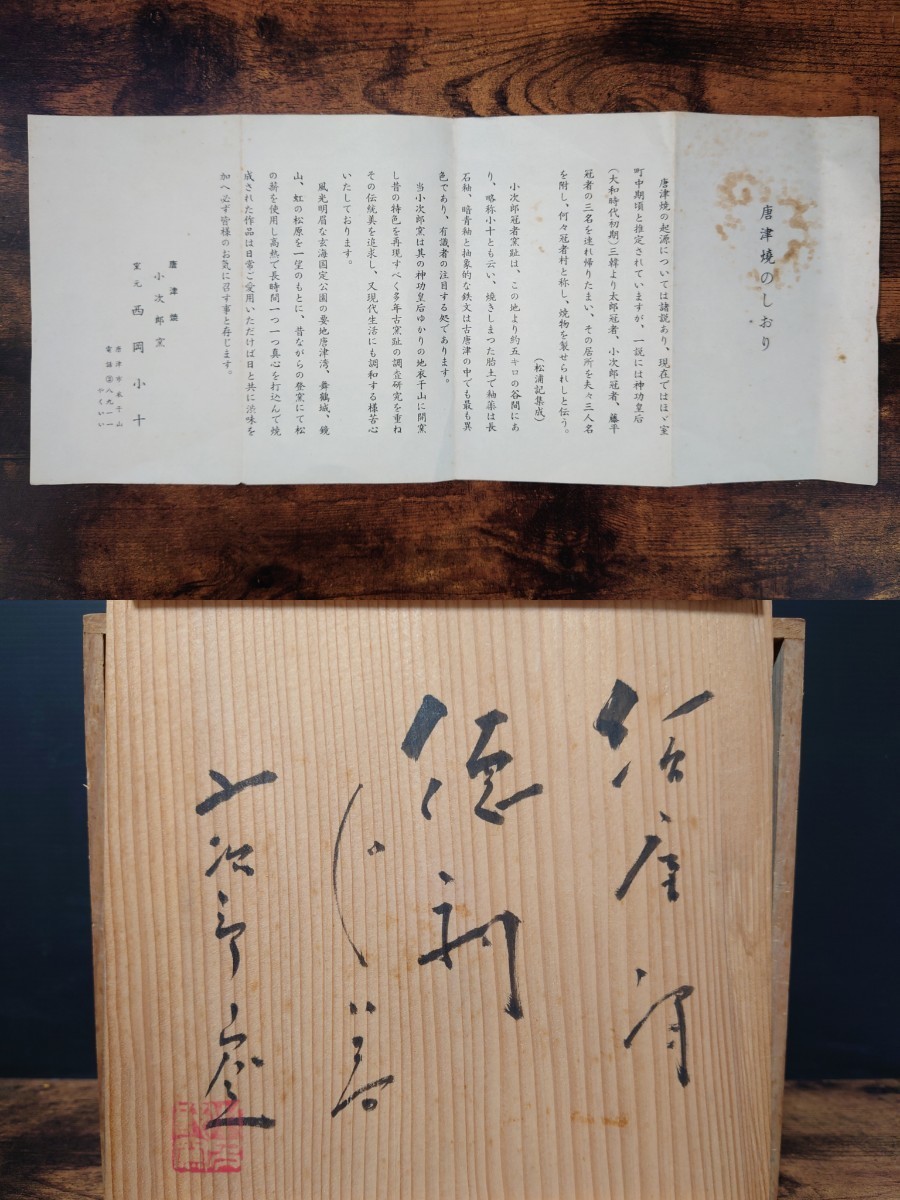 唐津焼のしおり
唐津焼の起源については諸説あり、現在ではほゞ室
町中期頃と推定されていますが、一説には神功皇后
(大和時代初期)三韓より太郎冠者、小次郎冠者、藤平
冠者の三名を連れ帰りたまい、その居所を夫々三人名
を附し、何々冠者村と称し、焼物を製せられしと伝う。
(松浦記集成)
小次郎冠者窯趾は、この地より約五キロの谷間にあ
り、略称小十とも云い、焼きしまつた胎土で釉薬は長
石釉、暗青釉と抽象的な鉄文は古唐津の中でも最も異
色であり、有識者の注目する処であります。
当小次郎窯は其の神功皇后ゆかりの地衣干山に開窯
し昔の特色を再現すべく多年古窯趾の調査研究を重ね
その伝統美を追求し、又現代生活にも調和する様苦心
いたしております。
風光明眉な玄海国定公園の要地唐津湾、舞鶴城、鏡
山、虹の松原を一望のもとに、昔ながらの登窯にて松
の薪を使用し高熱で長時間一つ一つ真心を打込んで焼
成された作品は日常ご愛用いただけば日と共に渋味を
加へ必ず皆様のお気に召す事と存じます。
唐津焼
小次郎窯
窯元 西岡小十
唐津市衣干山
電話②八九一一
やくいい
絵唐津
徳利
小次郎窯